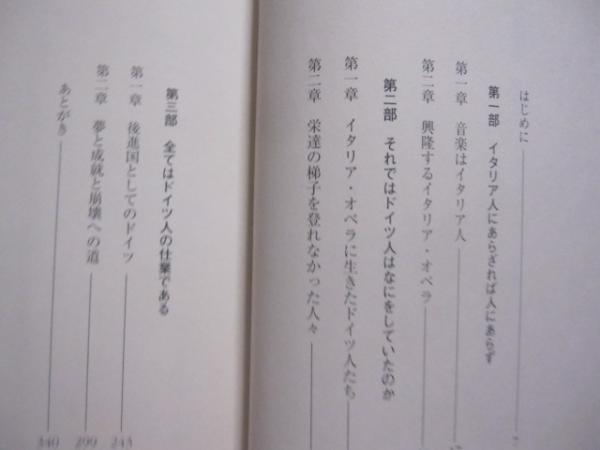 はじめに
第一部　イタリア人にあらざれば人にあらず
第一章　音楽はイタリア人
第二章　興隆するイタリア・オペラ
第二部　それではドイツ人はなにをしていたのか
第一章　イタリア・オペラに生きたドイツ人たち
第二章　栄達の梯子を登れなかった人々
第三部　全てはドイツ人の仕業である
第一章　後進国としてのドイツ 243
第二章　夢と成就と崩壊への道 299
あとがき 340